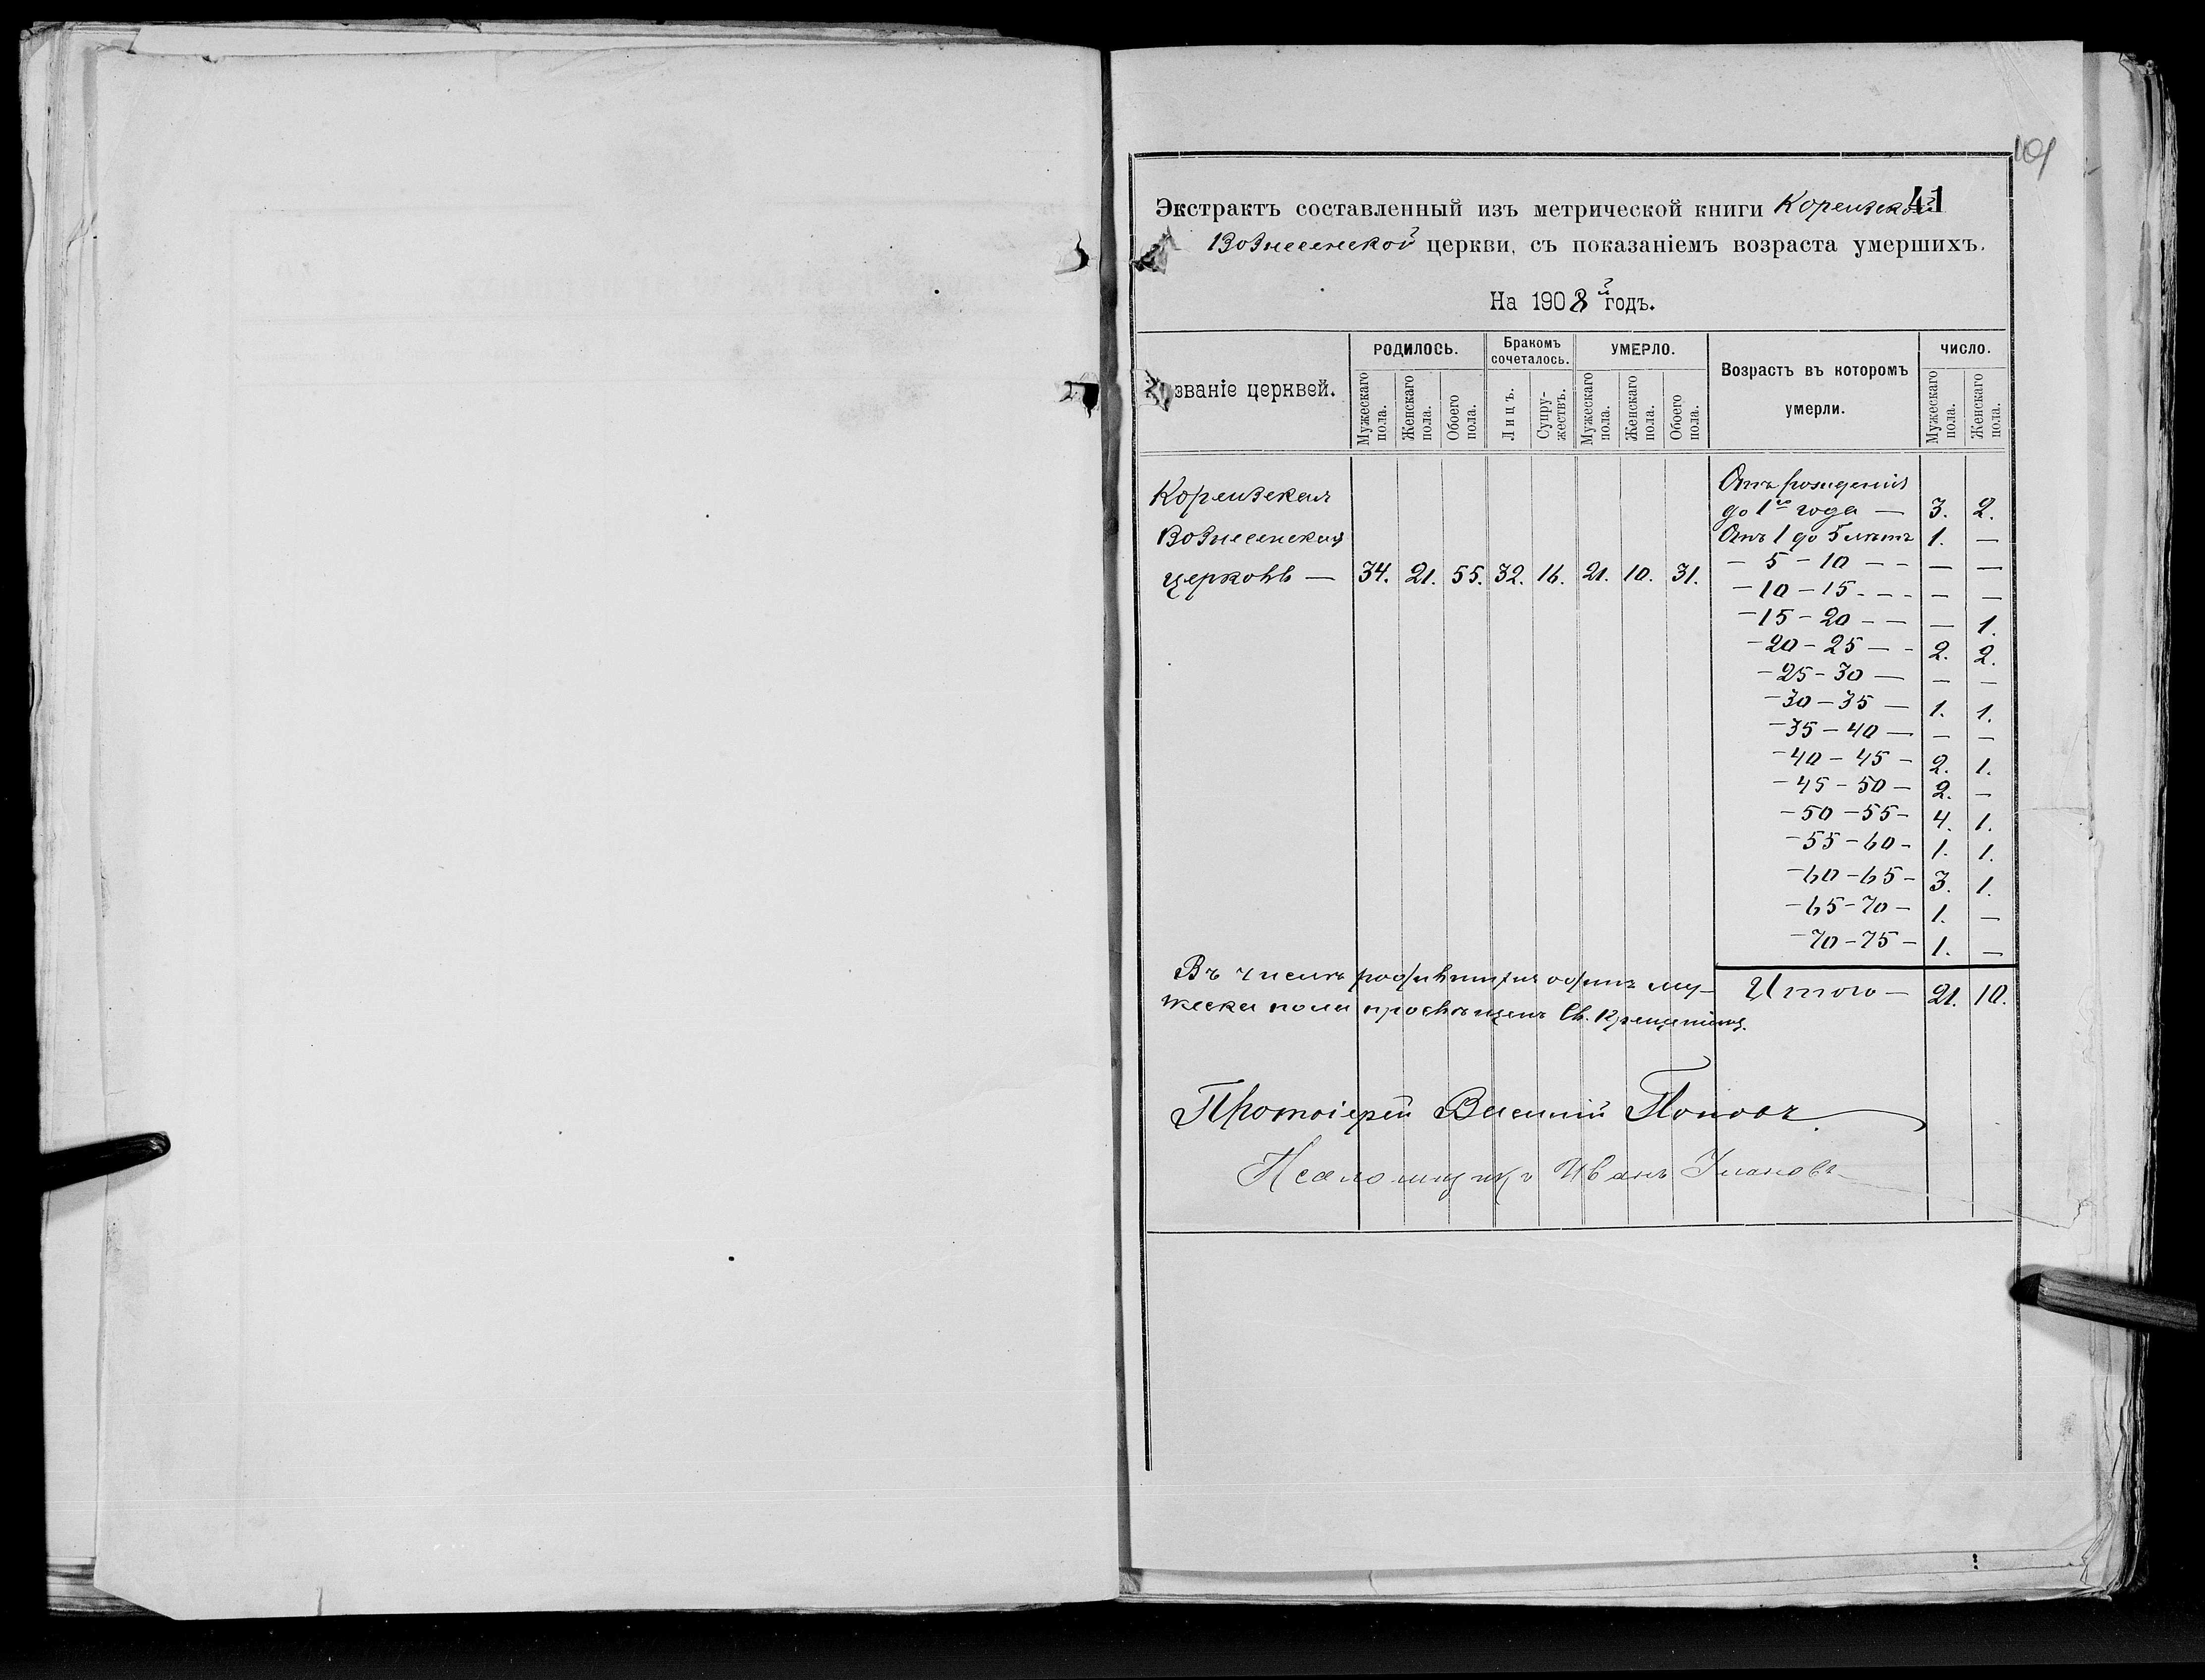 101
41
Экстрактъ составленный изъ метрической книги Кореизской
Вознесенской церкви, съ показаніемъ возраста умершихъ.
На 1908й годъ.
званіе церквей.
РОДИЛОСЬ.
Мужескаго пола.
Женскаго пола.
Обоего пола.
Бракомъ сочеталось.
Лицъ.
Супружествъ.
УМЕРЛО.
Мужескаго пола.
Женскаго пола.
Обоего пола.
Возрастъ въ которомъ
умерли.
ЧИСЛО.
Мужескаго пола.
Женскаго пола.
Кореизская
Вознесенская
церковь — 34. 21. 55. 32. 16. 21. 10. 31.
Отъ рожденія
до 1го года — 3. 2.
Отъ 1 до 5 лѣтъ 1. —
— 5 — 10 — — — —
— 10 — 15 - - - — —
— 15 — 20 — — — 1.
— 20 — 25 — - 2. 2.
— 25 — 30 — — —
— 30 — 35 — 1. 1.
— 35 — 40 — — —
— 40 — 45 — 2. 1.
— 45 — 50 — 2. —
— 50 — 55 — 4. 1.
— 55 — 60 — 1. 1.
— 60 — 65 — 3. 1.
— 65 — 70 — 1. —
— 70 — 75 — 1. —
Итого — 21. 10.
Въ числѣ родившихся одинъ му-
жеска пола просвѣщенъ Св. Крещеніемъ.
Протоіерей Василій Поповъ
Псаломщикъ Иванъ